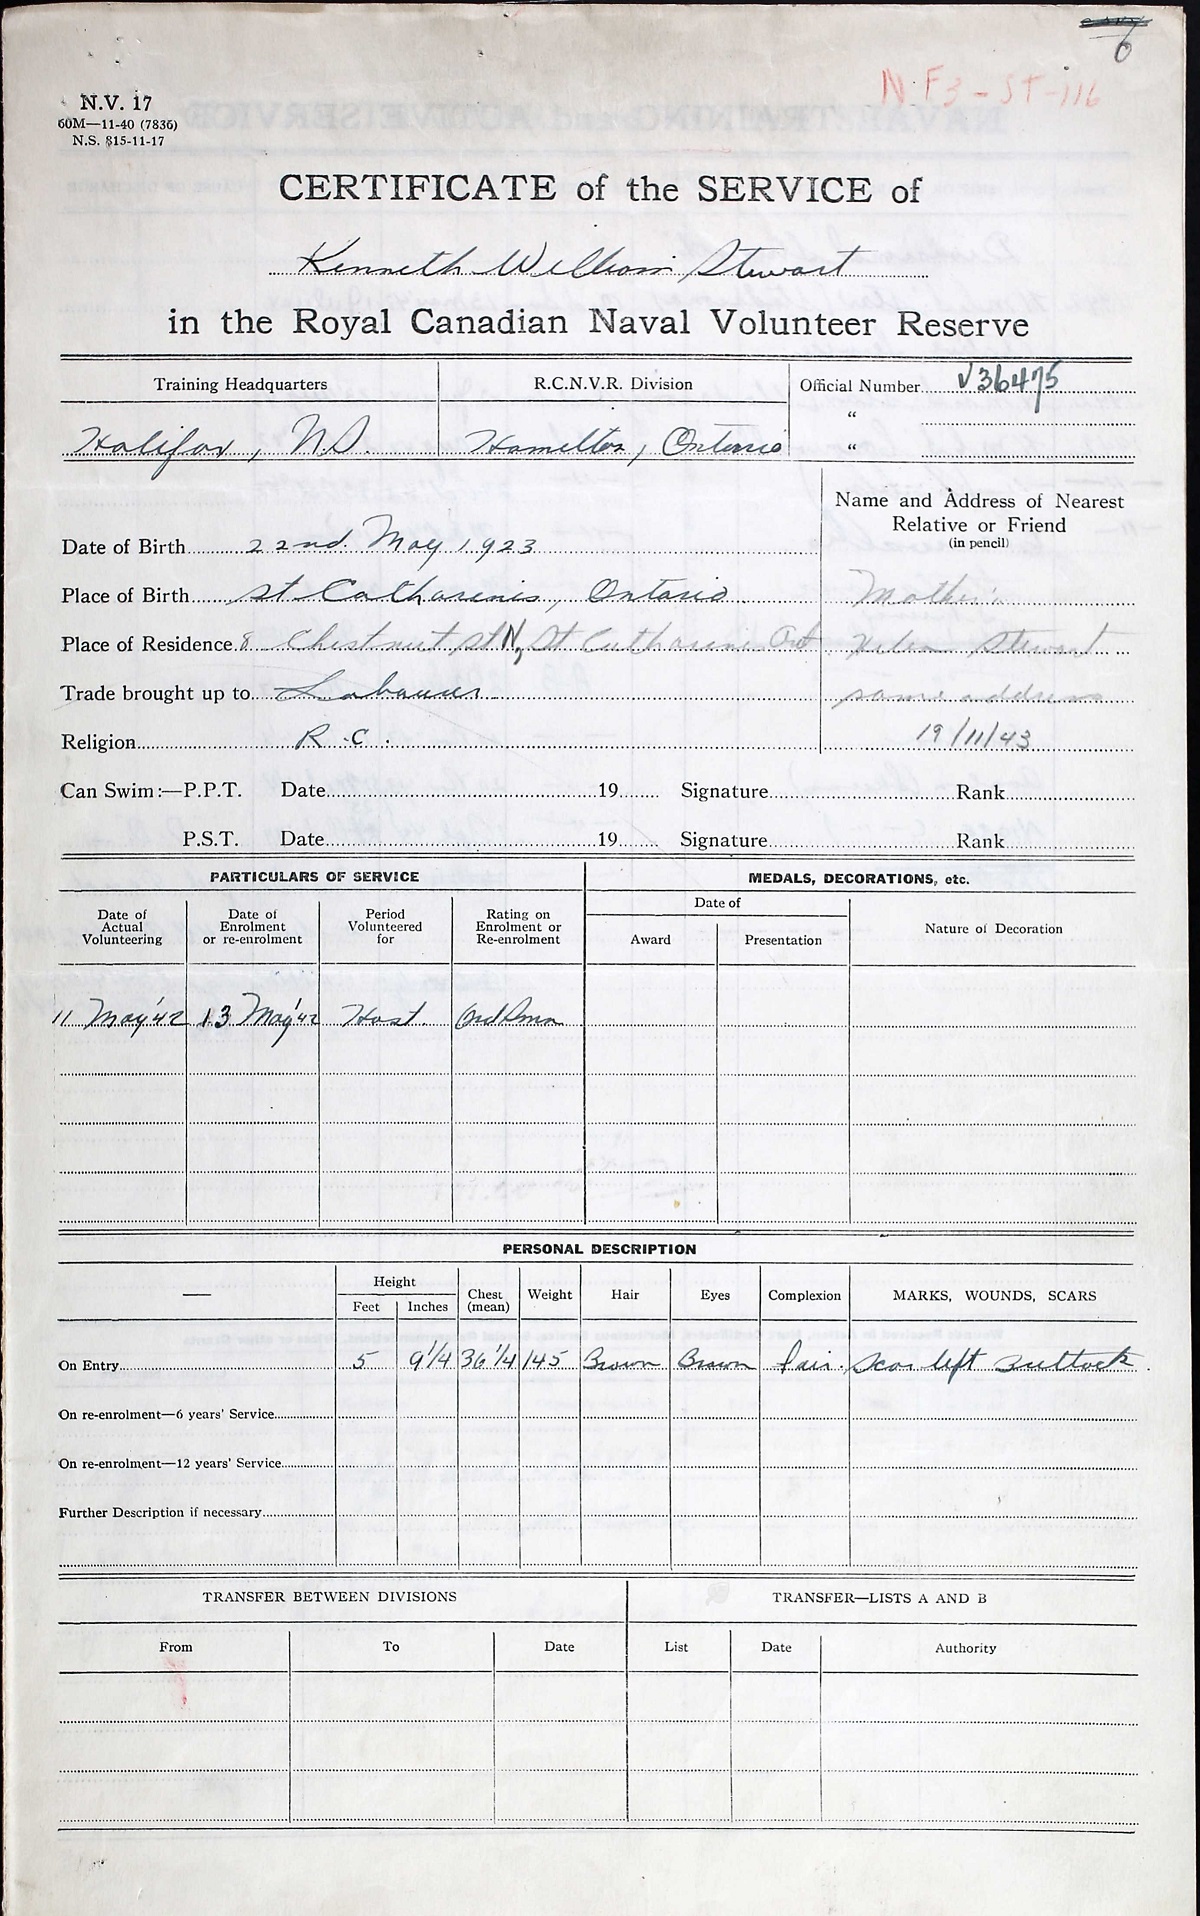 6
N.F3-ST-116
N.V. 17
60M—11-40 (7836)
N.S. 815-11-17
CERTIFICATE of the SERVICE of
Kenneth William Stewart
in the Royal Canadian Naval Volunteer Reserve
Training Headquarters R.C.N.V.R. Division Official Number V36475
“
Halifax, N.S. Hamilton, Ontario “
Name and Address of Nearest
Relative or Friend
(in pencil)
Date of Birth 22nd. May 1923
Place of Birth St Catharines, Ontario Mother:
Place of Residence 8 Chestnut St N, St Catharines Ont Helen Stewart
Trade brought up to Labourer same address
Religion R.C. 19/11/43
Can Swim:—P.P.T. Date 19 Signature Rank
P.S.T. Date 19 Signature Rank
PARTICULARS OF SERVICE MEDALS, DECORATIONS, etc.
Date of Actual Volunteering Date of Enrolment or re-enrolment Period Volunteered for Rating on Enrolment or Re-enrolment Date of Nature of Decoration
Award Presentation
11 May '42 13 May '42 Host. Ord Smn
PERSONAL DESCRIPTION
— Height Chest (mean) Weight Hair Eyes Complexion MARKS, WOUNDS, SCARS
Feet Inches
On Entry 5 9 1/4 36 1/4 145 Brown Brown fair. Scar left Buttock.
On re-enrolment—6 years' Service
On re-enrolment—12 years' Service
Further Description if necessary
TRANSFER BETWEEN DIVISIONS TRANSFER—LISTS A AND B
From To Date List Date Authority